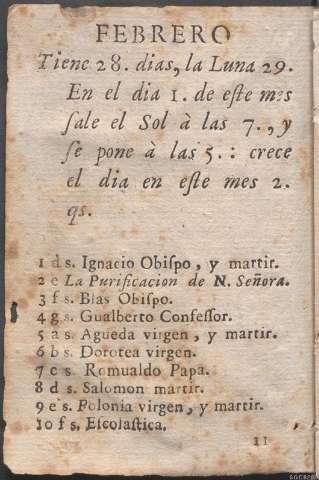 FEBRERO
Tiene 28. dias, la Luna 29.
En el dia 1. de eſte mes
ſale el Sol à las 7., y
ſe pone à las 5.: crece
el dia en eſte mes 2.
qs.
1 d s. Ignacio Obiſpo, y martir.
2 e La Purificacion de N. Señora.
3 f s. Blas Obiſpo.
4 g s. Gualberto Confeſſor.
5 a s. Agueda virgen, y martir.
6 b s. Dorotea virgen.
7 c s. Romualdo Papa.
8 d s. Salomon martir.
9 e s. Polonia virgen, y martir.
10 f s. Eſcolaſtica.
11